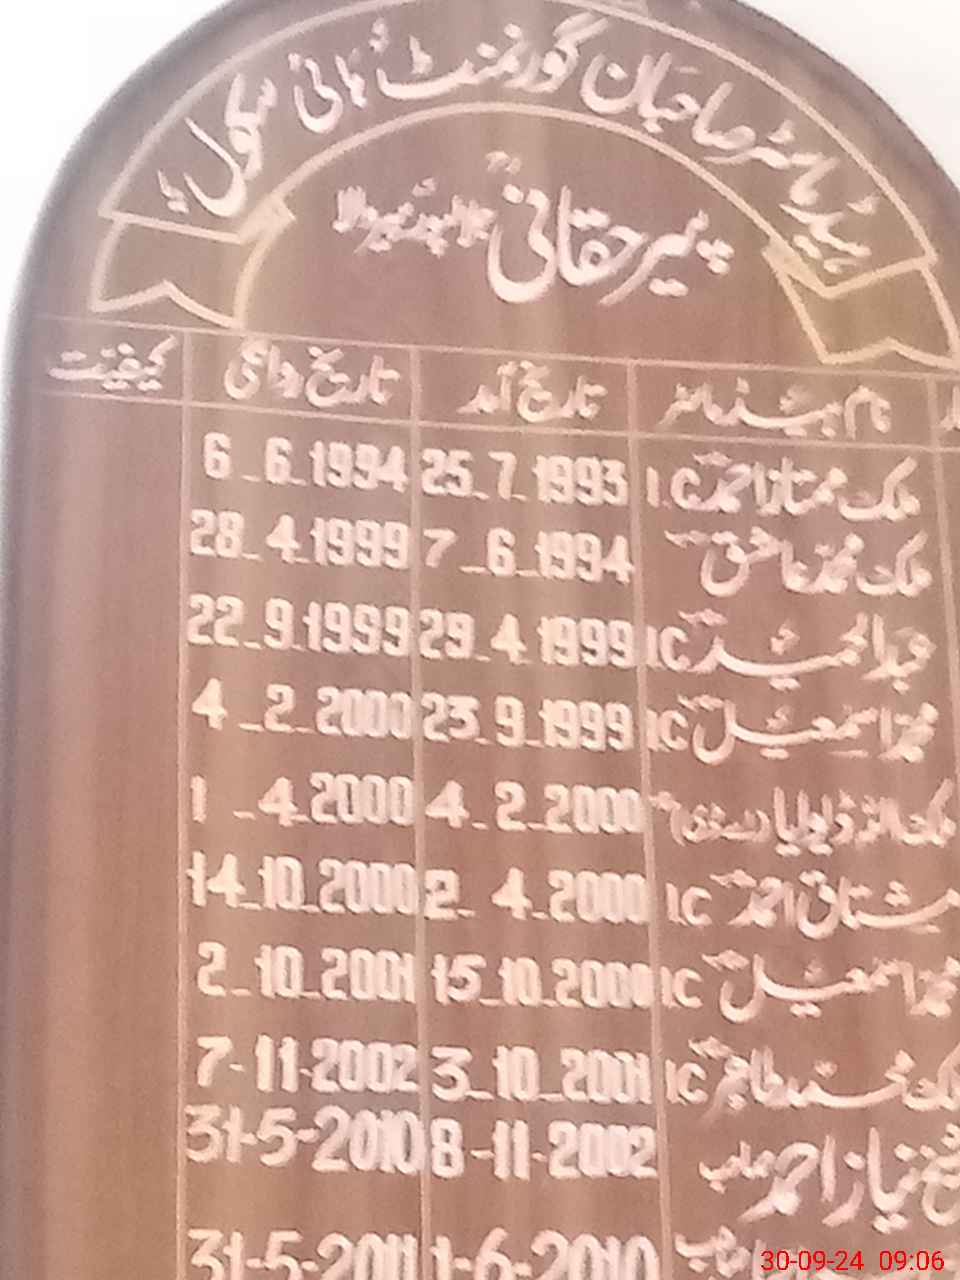 ہیڈ ماسٹر صاحبان گورنمنٹ ہائی سکول
پیر حقانی جلالپور پیروالا
نام ہیڈ ماسٹر تاریخ آمد تاریخ روانگی کیفیت
ملک ممتاز احمد I.C 25_7_1993 6_6_1994
ملک محمد عاشق 7_6_1994 28_4_1999
عبدالحمید I.C 29_4_1999 22_9_1999
محمد اسمٰعیل I.C 23_9_1999 4_2_2000
ملک 4_2_2000 1_4_2000
مشتاق احمد I.C 2_4_2000 14_10_2000
محمد اسمٰعیل I.C 15_10_2000 2_10_2001
ملک محمد طاہر I.C 3_10_2001 7-11-2002
شیخ نیاز احمد صاحب 8-11-2002 31-5-2010
1-6-2010 31-5-2011
30-09-24 09:06